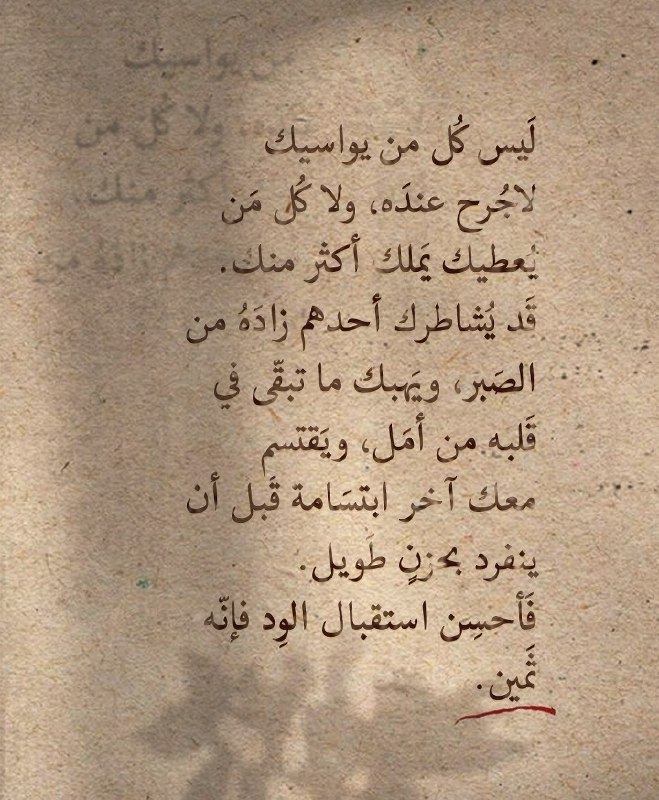 لَيس كُل من يواسيك
لاجُرح عندَه، ولا كُل مَن
يُعطيك يَملك أكثر منك.
قَد يُشاطرك أحدهم زادَهُ من
الصَبر، ويَهبك ما تبقّى في
قَلبه من أمَل، ويَقتسم
معك آخر ابتسَامة قَبل أن
ينفرد بحزنٍ طَويل.
فَأحسِن استقبال الوِد فإنّه
ثَمين.